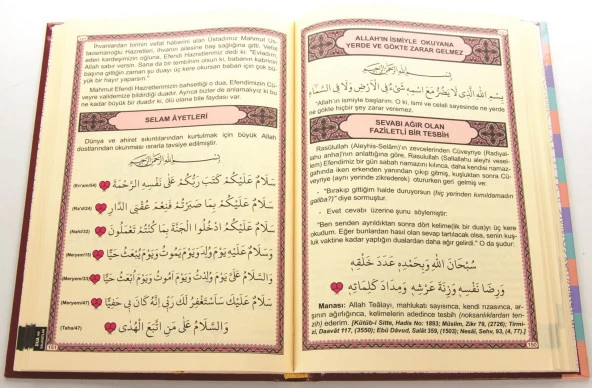 İhvanlardan birinin vefat haberini alan Üstadımız Mahmut Us-
taosmanoğlu Hazretleri, ihvanın ailesine baş sağlığına gitti. Vefat
eden kardeşimizin oğluna, Efendi Hazretlerimiz dedi ki: "Evladım
Allah sabır versin. Sana da bir tembihim olsun ki, babanın kabrinin
başına gittiğin zaman şu duayı üç kere okursan baban için çok bü-
yük bir hayır yaparsın."
Mahmut Efendi Hazretlerimizin bahsettiği o dua, Efendimizin Cü-
veyre validemize bildirdiği duadır. Ayrıca bizler de anlamalıyız ki bu
ne kadar büyük bir duadır ki, ölü olana bile faydası var.
SELAM ÂYETLERİ
Dünya ve ahiret sıkıntılarından kurtulmak için büyük Allah
dostlarından okunması ısrarla tavsiye edilmiştir.
بِسْمِ اللّٰهِ الرَّحْمٰنِ الرَّحِيمِ
سَلَامٌ عَلَيْكُمْ كَتَبَ رَبُّكُمْ عَلٰى نَفْسِهِ الرَّحْمَةَ (En'am/54)
سَلَامٌ عَلَيْكُمْ بِمَا صَبَرْتُمْ فَنِعْمَ عُقْبَى الدَّارِ (Ra'd/24)
سَلَامٌ عَلَيْكُمُ ادْخُلُوا الْجَنَّةَ بِمَا كُنْتُمْ تَعْمَلُونَ (Nahl/32)
وَسَلَامٌ عَلَيْهِ يَوْمَ وُلِدَ وَيَوْمَ يَمُوتُ وَيَوْمَ يُبْعَثُ حَيًّا (Meryem/15)
وَالسَّلَامُ عَلَيَّ يَوْمَ وُلِدْتُ وَيَوْمَ أَمُوتُ وَيَوْمَ أُبْعَثُ حَيًّا (Meryem/33)
سَلَامٌ عَلَيْكَ سَأَسْتَغْفِرُ لَكَ رَبِّي إِنَّهُ كَانَ بِي حَفِيًّا (Meryem/47)
وَالسَّلَامُ عَلٰى مَنِ اتَّبَعَ الْهُدٰى (Taha/47)
ALLAH'IN İSMİYLE OKUYANA
YERDE VE GÖKTE ZARAR GELMEZ
بِسْمِ اللّٰهِ الرَّحْمٰنِ الرَّحِيمِ
بِسْمِ اللّٰهِ الَّذِي لَا يَضُرُّ مَعَ اسْمِهِ شَيْءٌ فِي الْأَرْضِ وَلَا فِي السَّمَاءِ
"Allah'ın ismiyle başlarım. O ki, ismi ve celali sayesinde ne yerde
ne gökte hiçbir şey zarar veremez.
SEVABI AĞIR OLAN
FAZİLETLİ BİR TESBİH
Rasûlüllah (Aleyhis-Selâm)'ın zevcelerinden Cüveyriye (Radiyal-
lahu anha)'nın anlattığına göre, Rasulullah (Sallallahu aleyhi vesel-
lem) Efendimiz bir gün sabah namazını kılınca, daha kendisi namaz-
gahında iken erkenden yanından çıkıp gitmiş, kuşluktan sonra Cü-
veyriye (aynı yerinde zikrederek) otururken geri gelmiş ve:
- "Bırakıp gittiğim halde duruyorsun (hiç yerinden kımıldamadın
galiba?)" diye sormuştur.
- Evet cevabı üzerine şunu söylemiştir:
"Ben senden ayrıldıktan sonra dört kelime(lik bir duay)ı üç kere
okudum. Eğer bunlardan hasıl olacak sevap tartılacak olsa, senin kuş-
luk vaktine kadar yaptığın dualardan daha ağır gelirdi." O da şudur:
سُبْحَانَ اللّٰهِ وَبِحَمْدِهِ عَدَدَ خَلْقِهِ
وَرِضَا نَفْسِهِ وَزِنَةَ عَرْشِهِ وَمِدَادَ كَلِمَاتِهِ
Manası: Allah Teâlayı, mahlukatı sayısınca, kendi rızasınca, ar-
şının ağırlığınca, kelimelerin adedince tesbih (noksanlıklardan ten-
zih) ederim. [Kütüb-i Sitte, Hadis No: 1893; Müslim, Zikr 79, (2726); Tirmi-
zi, Daavât 117, (3550); Ebû Dâvud, Salât 359, (1503); Nesâî, Sehv, 93, (4, 77).]